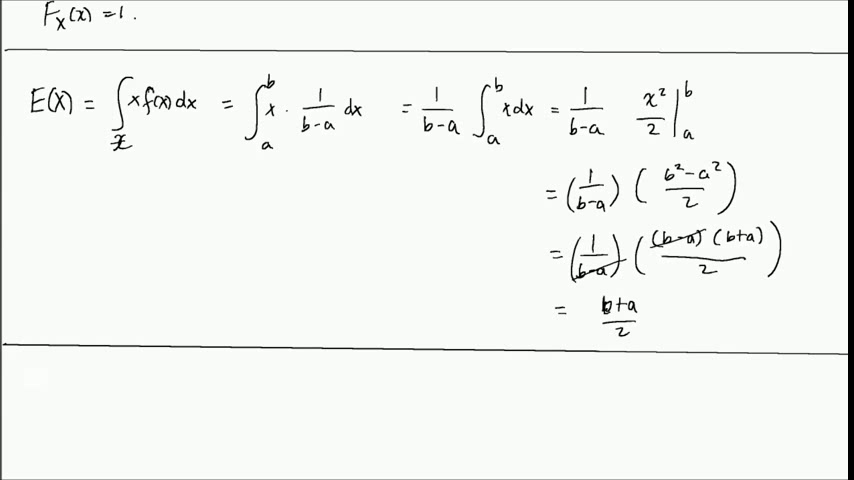 F_X(x) = 1.
E(X) = ∫_𝒳 x f(x) dx = ∫_a^b x · 1/(b-a) dx = 1/(b-a) ∫_a^b x dx = 1/(b-a) x²/2 |_a^b
= (1/(b-a)) ((b²-a²)/2)
= (1/(b-a)) ((b-a)(b+a)/2)
= (b+a)/2